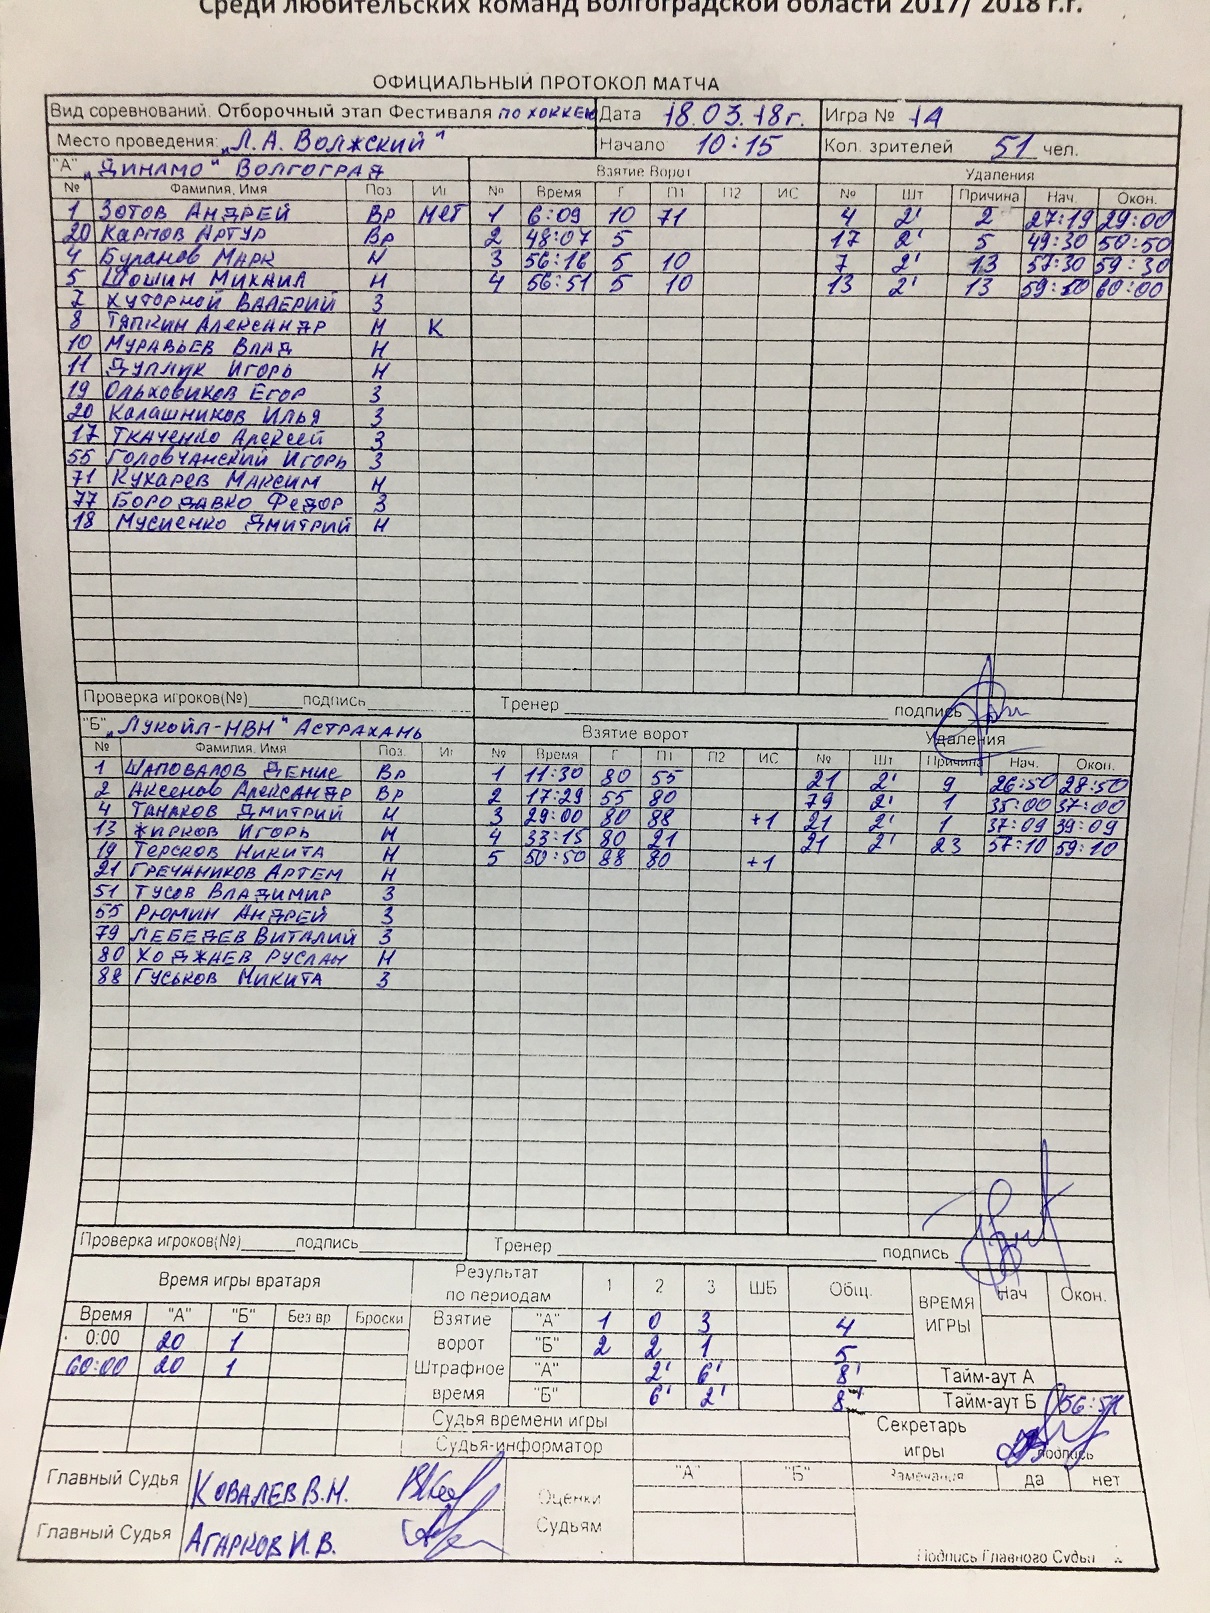 Среди любительских команд Волгоградской области 2017/ 2018 г.г.
ОФИЦИАЛЬНЫЙ ПРОТОКОЛ МАТЧА
Вид соревнований. Отборочный этап Фестиваля по хоккею Дата 18.03.18г. Игра № 14
Место проведения: "Л.А. Волжский" Начало 10:15 Кол. зрителей 51 чел.
"А" "Динамо" Волгоград Взятие Ворот Удаления
№ Фамилия, Имя Поз Иг № Время Г П1 П2 ИС № Шт Причина Нач. Окон.
1 Зотов Андрей Вр нет 1 6:09 10 71 4 2' 2 27:19 29:00
20 Карпов Артур Вр 2 48:07 5 17 2' 5 49:30 50:50
4 Буланов Марк Н 3 56:16 5 10 7 2' 13 57:30 59:30
5 Шошин Михаил Н 4 56:51 5 10 13 2' 13 59:50 60:00
7 Хуторной Валерий З
8 Тяпкин Александр Н К
10 Муравьев Влад Н
11 Дуплик Игорь Н
19 Ольховиков Егор З
20 Калашников Илья З
17 Ткаченко Алексей З
55 Головчанский Игорь З
71 Кухарев Максим Н
77 Бородавко Федор З
18 Мусиенко Дмитрий Н
Проверка игроков(№) подпись Тренер подпись
"Б" "Лукойл-НВН" Астрахань Взятие ворот Удаления
№ Фамилия, Имя Поз. Иг № Время Г П1 П2 ИС № Шт Причина Нач. Окон.
1 Шаповалов Денис Вр 1 11:30 80 55 21 2' 9 26:50 28:50
2 Аксенов Александр Вр 2 17:29 55 80 79 2' 1 35:00 37:00
4 Танаков Дмитрий Н 3 29:00 80 88 +1 21 2' 1 37:09 39:09
13 Жирков Игорь Н 4 33:15 80 21 21 2' 23 57:10 59:10
19 Терсков Никита Н 5 50:50 88 80 +1
21 Гречаников Артем Н
51 Тусов Владимир З
55 Рюмин Андрей З
79 Лебедев Виталий З
80 Ходжаев Руслан Н
88 Гуськов Никита З
Проверка игроков(№) подпись Тренер подпись
Время игры вратаря Результат по периодам 1 2 3 ШБ Общ. ВРЕМЯ ИГРЫ Нач Окон.
Время "А" "Б" Без вр Броски Взятие ворот "А" 1 0 3 4
0:00 20 1 "Б" 2 2 1 5
60:00 20 1 Штрафное время "А" 2' 6' 8' Тайм-аут А
"Б" 6' 2' 8' Тайм-аут Б 56:51
Судья времени игры Секретарь игры подпись
Судья-информатор
Главный Судья Ковалев В.Н. Оценки Судьям "А" "Б" Замечания да нет
Главный Судья Агарков И.В.
Подпись Главного Судьи